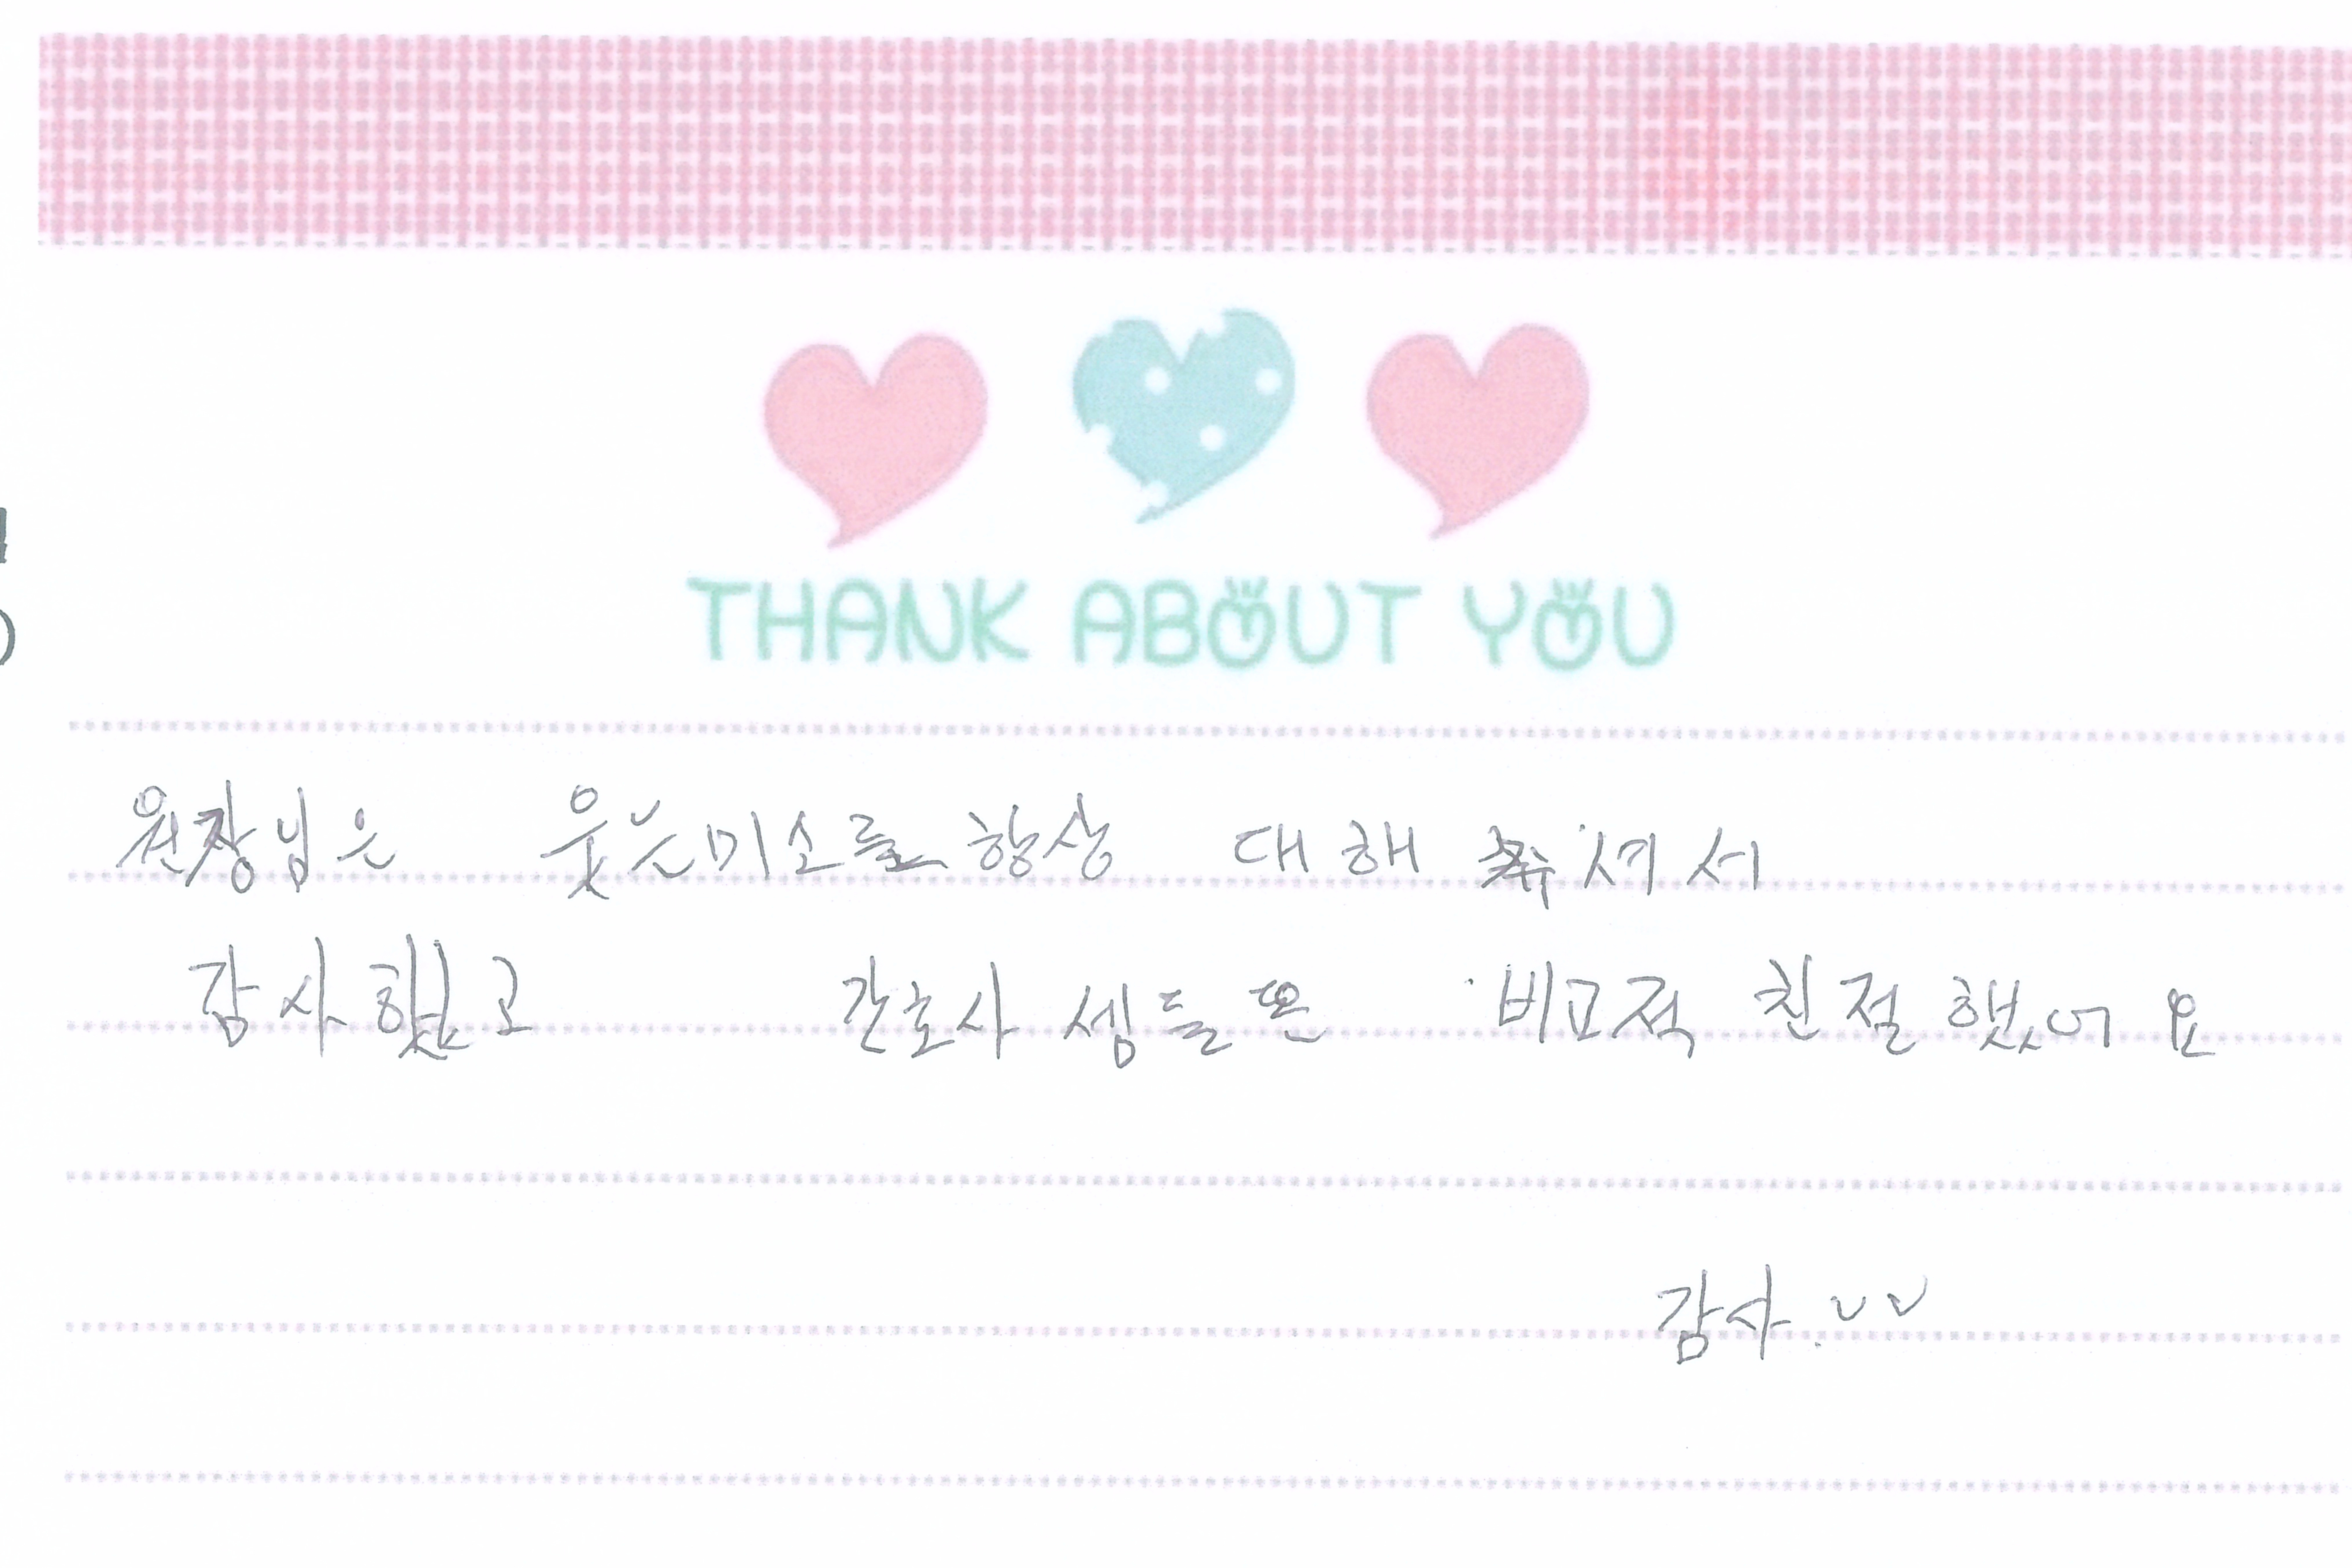 THANK ABOUT YOU
원장님은 웃는미소를 항상 대해 주셔서
감사했고 간호사 셈들은 비고적 친절했어요
감사.ᴗᴗ